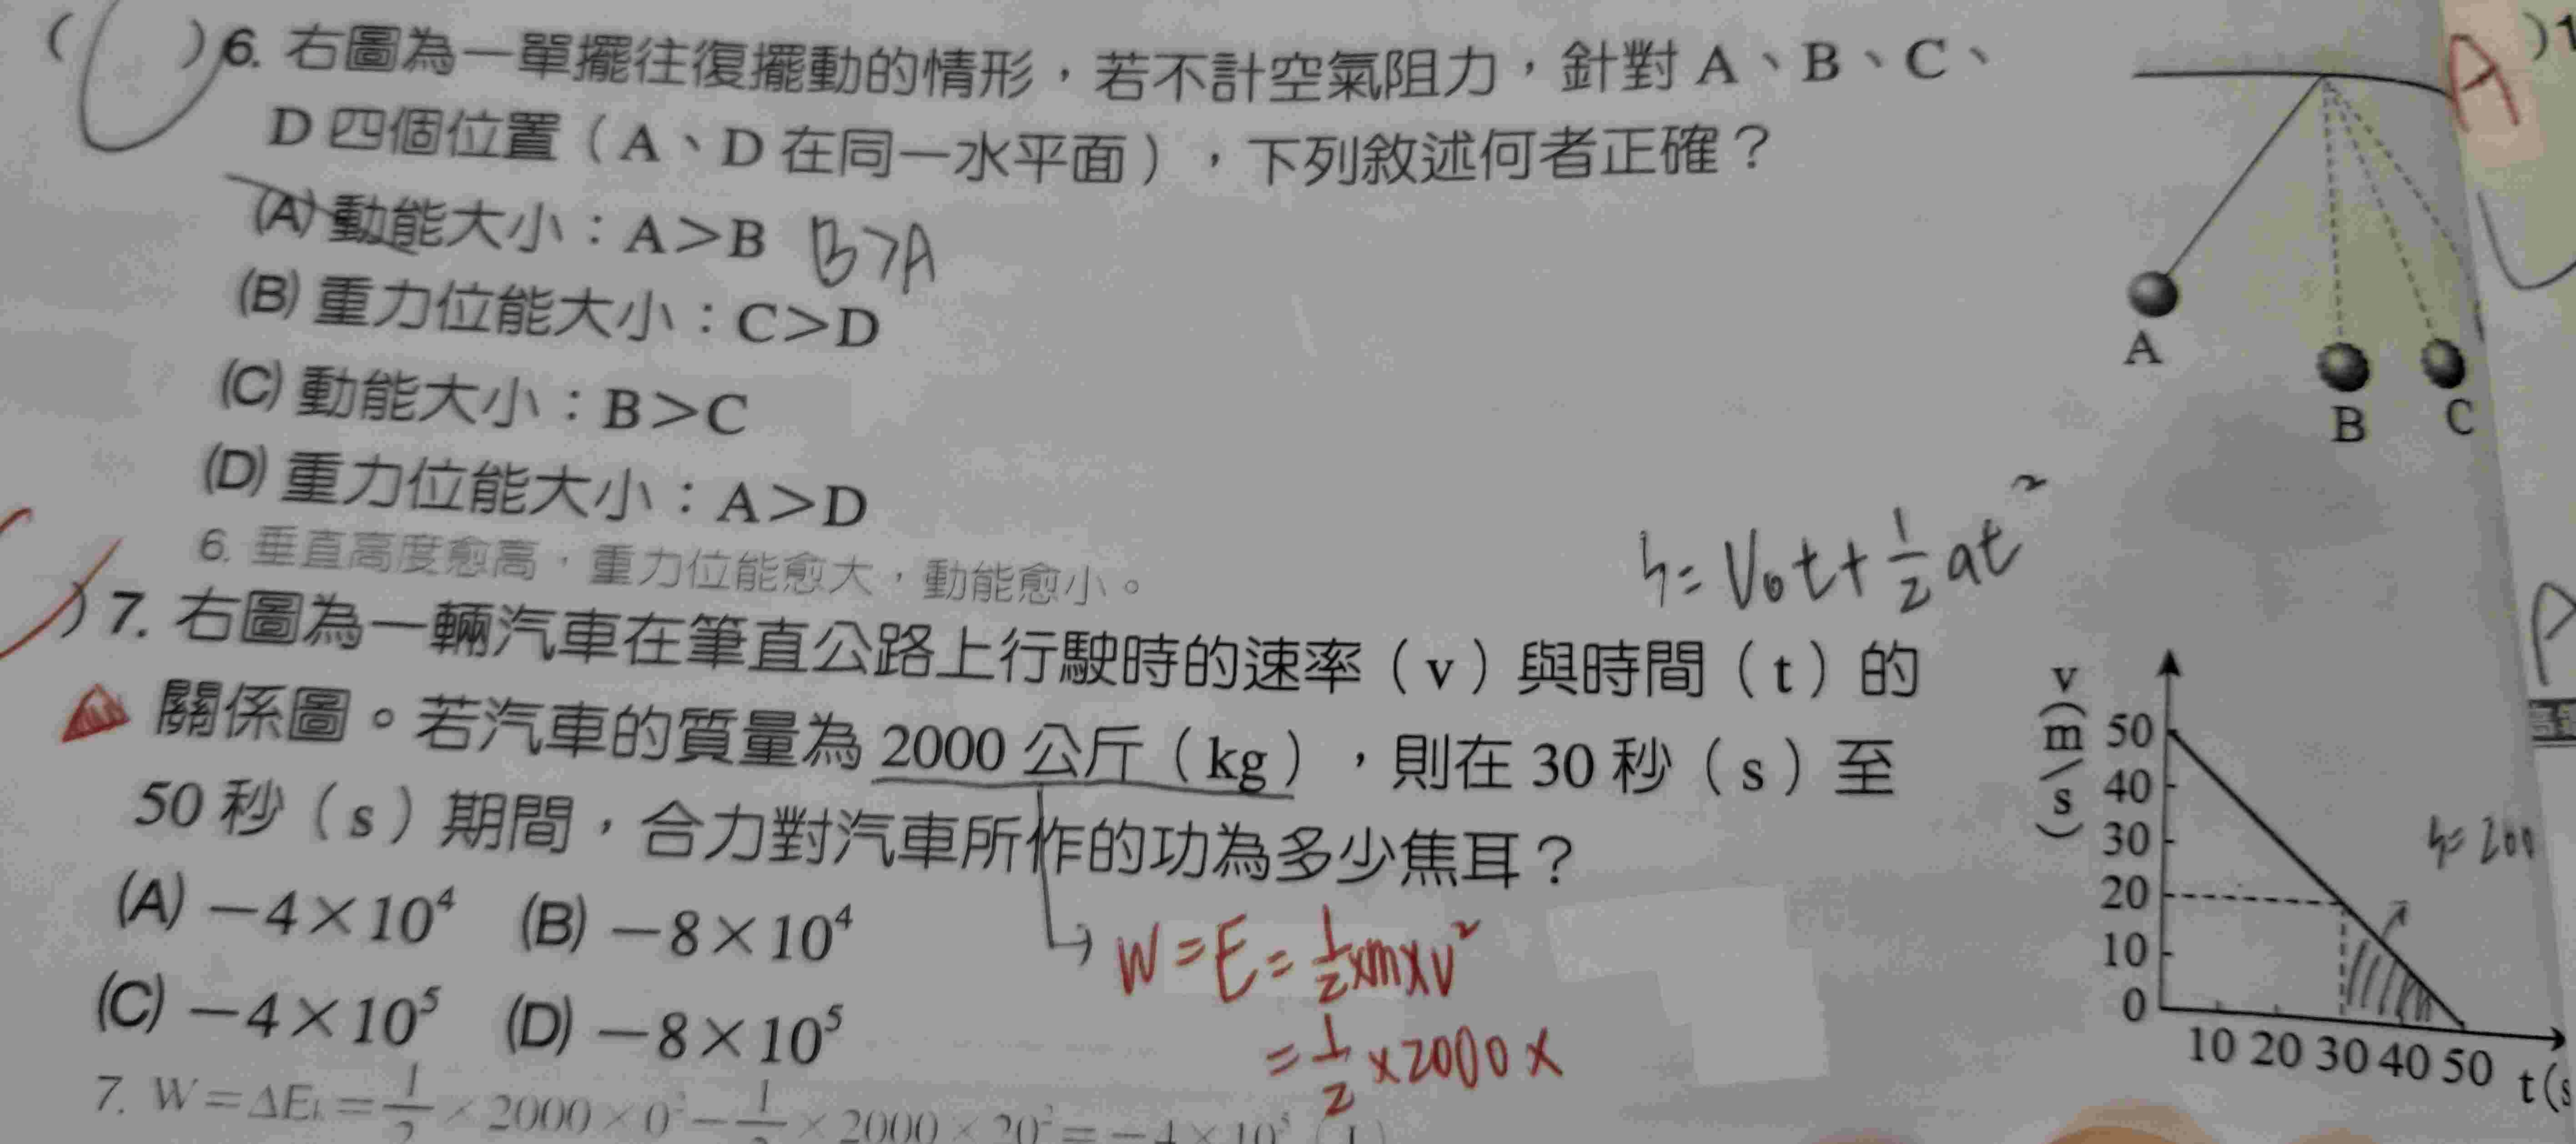 ( )6. 右圖為一單擺往復擺動的情形，若不計空氣阻力，針對 A、B、C、
D 四個位置（A、D 在同一水平面），下列敘述何者正確？
(A) 動能大小：A＞B B>A
(B) 重力位能大小：C＞D
(C) 動能大小：B＞C
(D) 重力位能大小：A＞D
6. 垂直高度愈高，重力位能愈大，動能愈小。
A
B
C
A
)1
h= V₀t+½at²
)7. 右圖為一輛汽車在筆直公路上行駛時的速率（v）與時間（t）的
關係圖。若汽車的質量為 2000 公斤（kg），則在 30 秒（s）至
50 秒（s）期間，合力對汽車所作的功為多少焦耳？
(A) −4×10⁴ (B) −8×10⁴
(C) −4×10⁵ (D) −8×10⁵
W=E=½×m×v²
=½×2000×
7. W=ΔEₖ=½×2000×0²−½×2000×20²=−4×10⁵（J）
v(m/s)
50
40
30
20
10
0
10 20 30 40 50 t(s
h=200